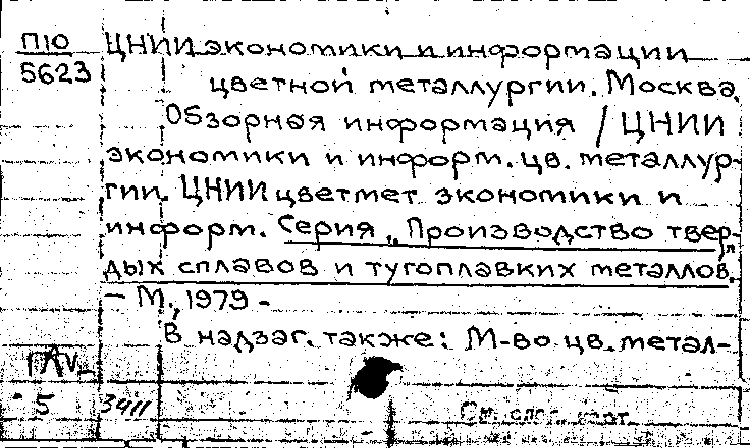 П10
5623
ЦНИИ экономики и информации
цветной металлургии. Москва.
Обзорная информация / ЦНИИ
экономики и информ. цв. металлур-
гии. ЦНИИцветмет экономики и
информ. Серия „Производство твер-
дых сплавов и тугоплавких металлов".
– М., 1979 -
В надзаг. также: М-во цв. метал-
5
3411
См. след. карт.